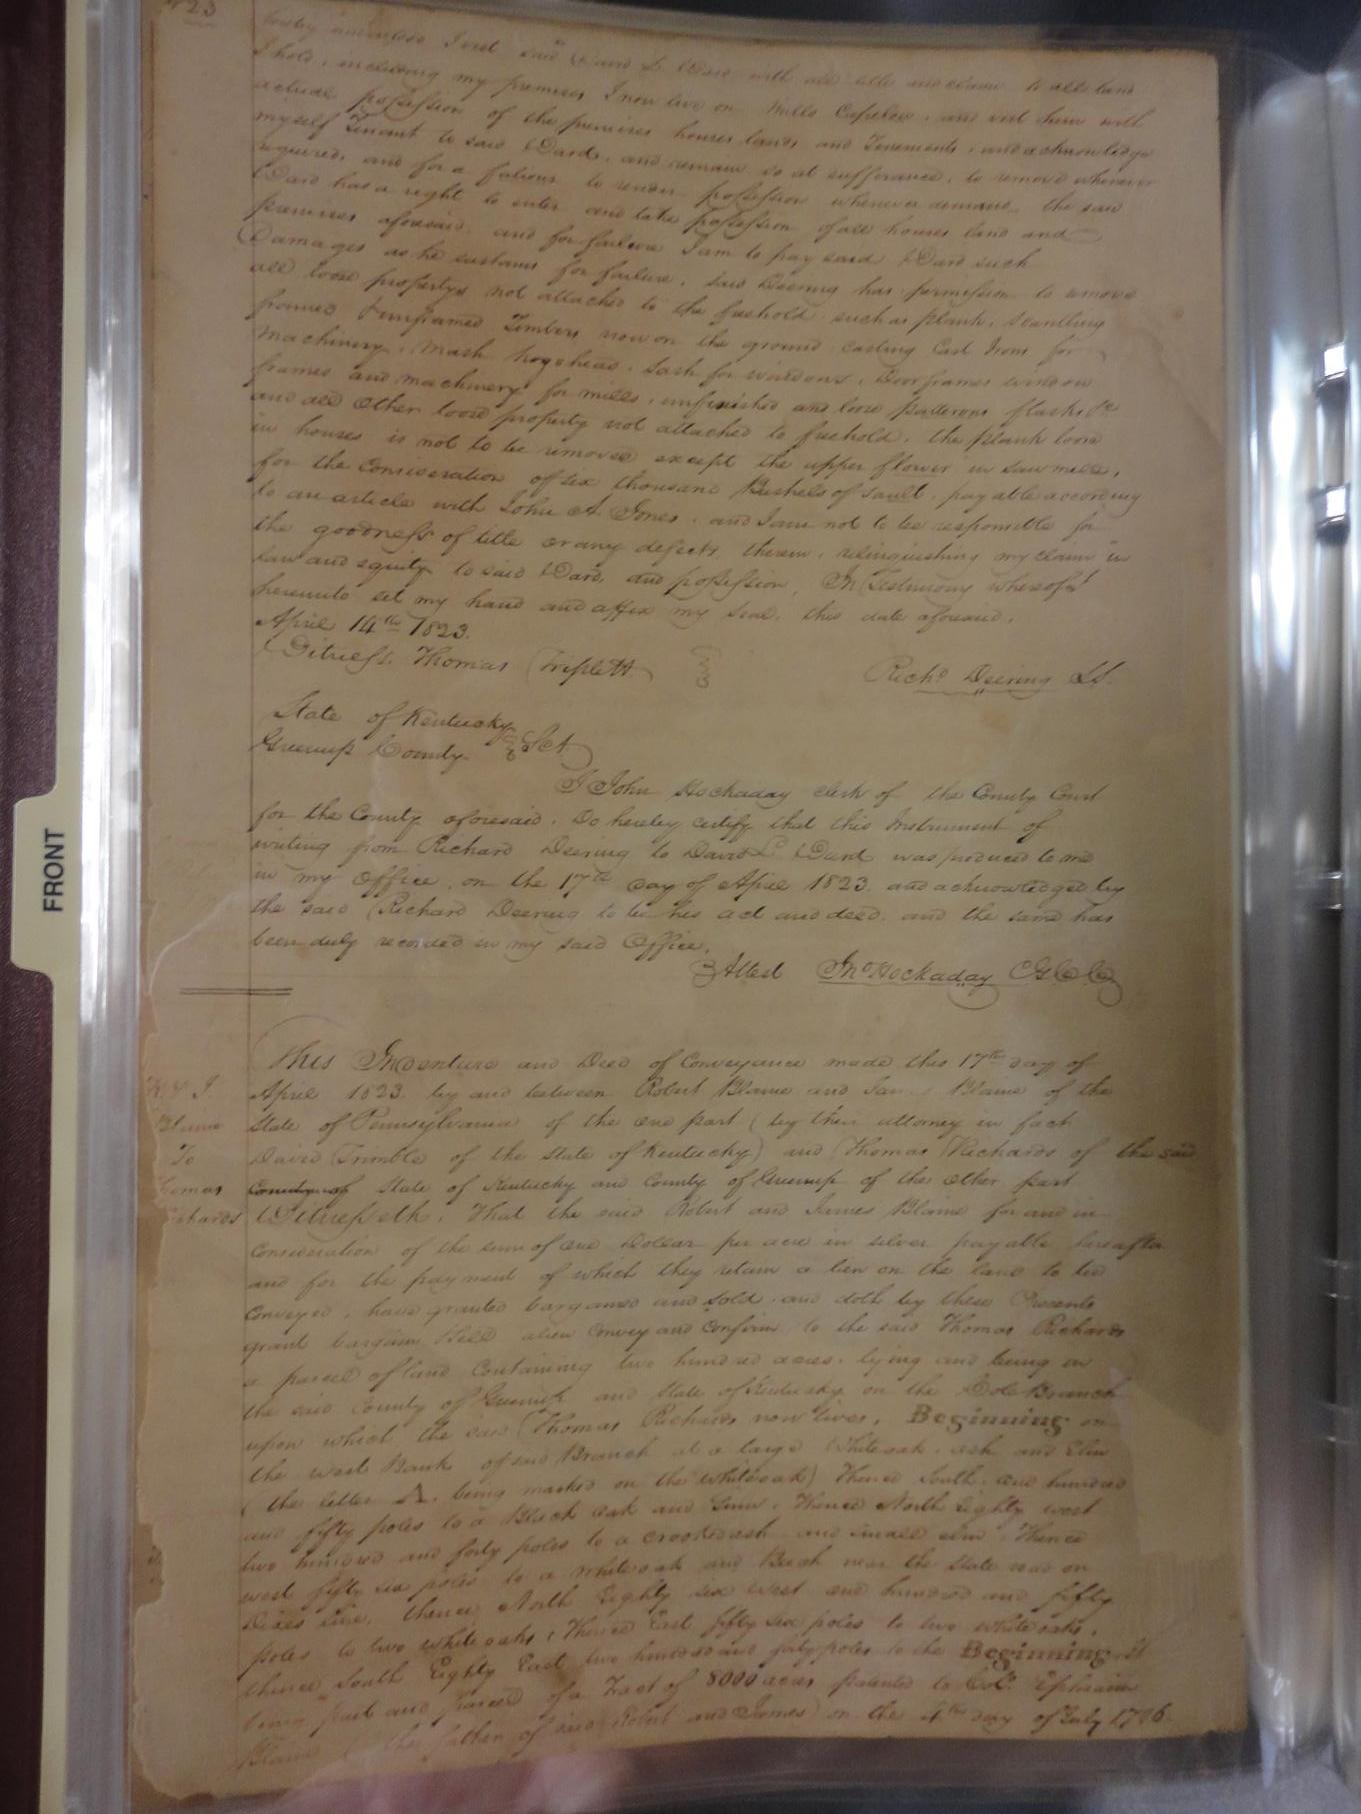 423
hereby invest said David L Ward with all title and claim to all land
I hold, including my premises I now live on Mills &c, and vest him with
actual possession of the premises houses lands and Tenements, and acknowledge
myself Tenant to said Ward, and remain so at sufferance, to remove whenever
required, and for a failure to render possession whenever demand the said
Ward has a right to enter and take possession of all houses land and
premises aforesaid, and for failure I am to pay said Ward such
Damages as he sustains for failure, said Deering has permission to remove
all loose property not attached to the freehold such as plank, scantling
framed & unframed Timbers now on the ground casting Cast Irons for
Machinery, Mash hogshead, Sash for windows, Door frames window
frames and machinery for mills, unfinished and loose patterns flasks &c
and all other loose property not attached to freehold, the plank loose
in houses is not to be removed except the upper flower in saw mill,
for the Consideration of six thousand Bushels of sault, payable according
to an article with John A. Jones, and I am not to be responsible for
the goodness of title or any defects therein, relinquishing my claim in
law and equity to said Ward, and possession, In Testimony whereof I
hereunto set my hand and affix my seal, this date aforesaid.
April 14th 1823.
Witness. Thomas Triplett
Richd Deering LS.
State of Kentucky
Greenup County Sct
I John Hockaday clerk of the County Court
for the County aforesaid, Do hereby certify that this Instrument of
writing from Richard Deering to David L Ward was produced to me
in my Office, on the 17th day of April 1823, and acknowledged by
the said Richard Deering to be his act and deed, and the same has
been duly recorded in my said Office.
Attest Jno Hockaday CGCC
This Indenture and Deed of Conveyance made this 17th day of
R. & J. April 1823, by and between Robert Blaine and Blaine of the
Blaine State of Pennsylvania of the one part (by their attorney in fact
To David Trimble of the State of Kentucky) and Thomas Richards of the said
homas County of State of Kentucky and County of Greenup of the other part
chards Witnesseth, That the said Robert and James Blaine for and in
Consideration of the sum of one Dollar per acre in silver payable hereafter
and for the payment of which they retain a lien on the land to be
Conveyed, have granted bargained and sold and doth by these Presents
grant bargain Sell alien Convey and Confirm to the said Thomas Richards
a parcel of land Containing two hundred acres, lying and being in
the said County of Greenup and State of Kentucky, on the Cole Branch
upon which the said Thomas Richards now lives, Beginning on
the west Bank of said Branch at a large White oak, ash and Elm
(the letter A, being marked on the White oak) Thence South, one hundred
and fifty poles to a Black oak and Gum, Thence North Eighty west
two hundred and forty poles to a crooked ash and small elm, Thence
west fifty six poles to a white oak and Beech near the State road on
line, thence North Eighty six west one hundred and fifty
poles to two white oaks, Thence East fifty six poles to two white oaks,
thence South Eighty East two hundred and forty poles to the Beginning, it
being part and parcel of a Tract of 8000 acres patented to Colo. Ephraim
Blaine (the father of said Robert and James) on the 4th day of July 1786
FRONT